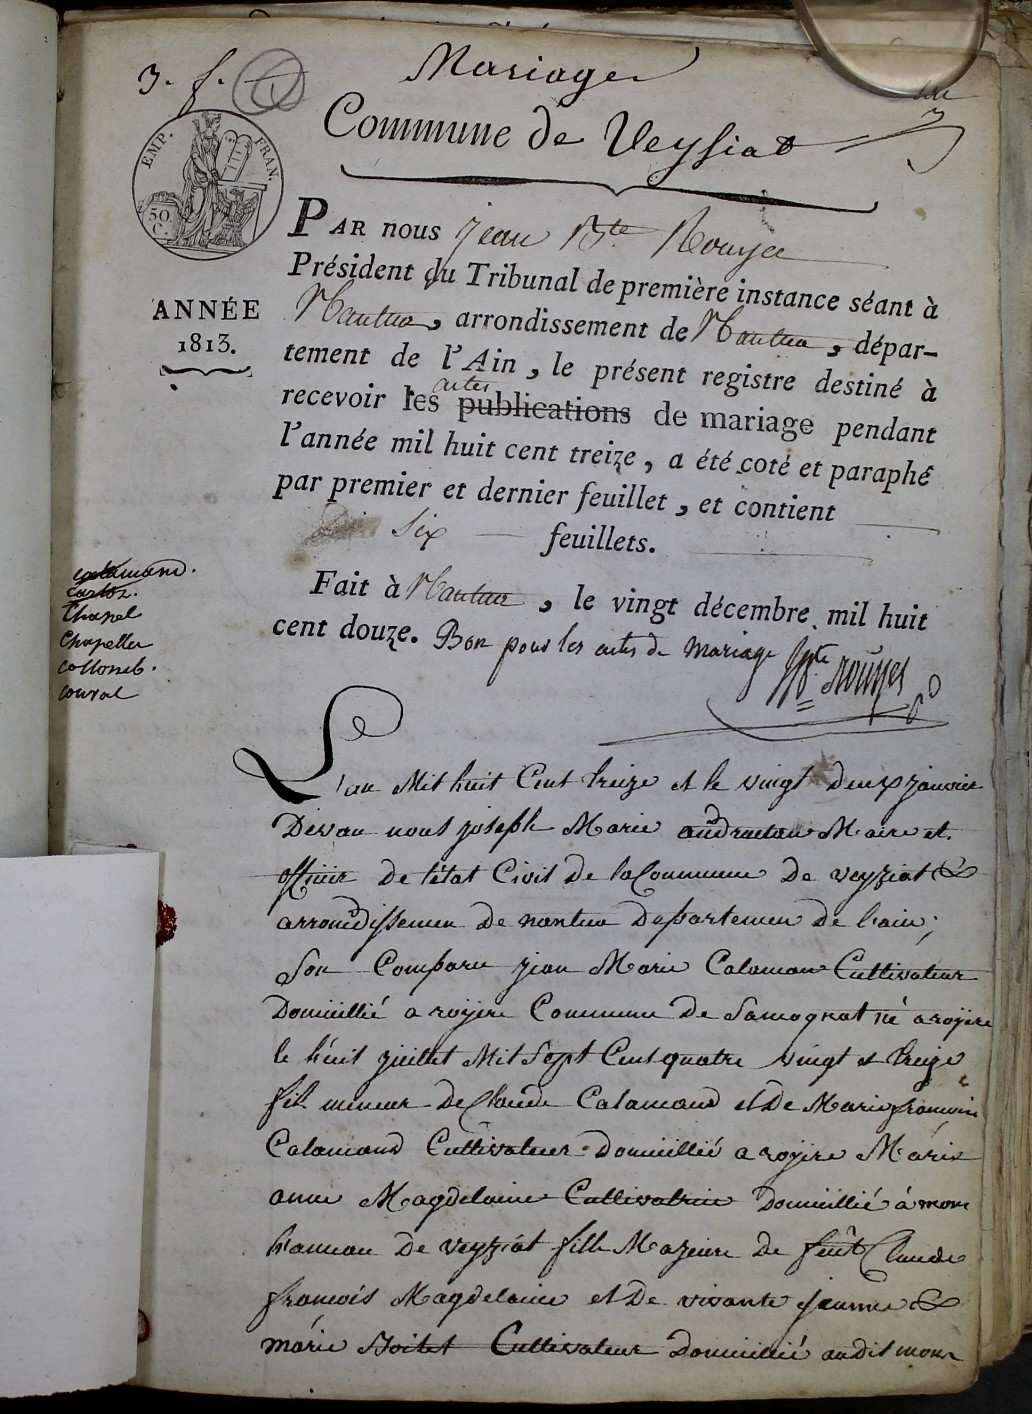 Mariage
3. f.
Commune de Veysiat
EMP. FRAN.
50.
C.
PAR nous jean Bte Rouyer
Président du Tribunal de première instance séant à
Nantua, arrondissement de Nantua, dépar-
tement de l'Ain, le présent registre destiné à
actes
recevoir les publications de mariage pendant
l'année mil huit cent treize, a été coté et paraphé
par premier et dernier feuillet, et contient
six feuillets.
Fait à Nantua, le vingt décembre mil huit
cent douze. Bon pour les actes de Mariage
ANNÉE
1813.
calamand.
carloz.
Chanel
Chapelle
collomb.
L'an Mil huit Cent treize et le vingt deux janvier
Devan nous joseph Marie Maire et
officier de l'état Civil de la Commune de veyziat
arrondissemen de nantua departemen de l'ain;
Son Comparu jean Marie Calaman Cultivateur
Domicillié a royere Commune de Samognat né a royere
le huit juillet Mil Sept Cent quatre vingt et treize
fils mineur de Claude Calamand et De Marie françoise
Calamand Cultivateur Domicillié a royere Marie
anne Magdelaine Cultivatrice Domicillié à mon
hameau De veyziat fille Majeure de feut Claude
françois Magdelaine et De vivante jeanne
marie Cultivateur Domicillié audit mon